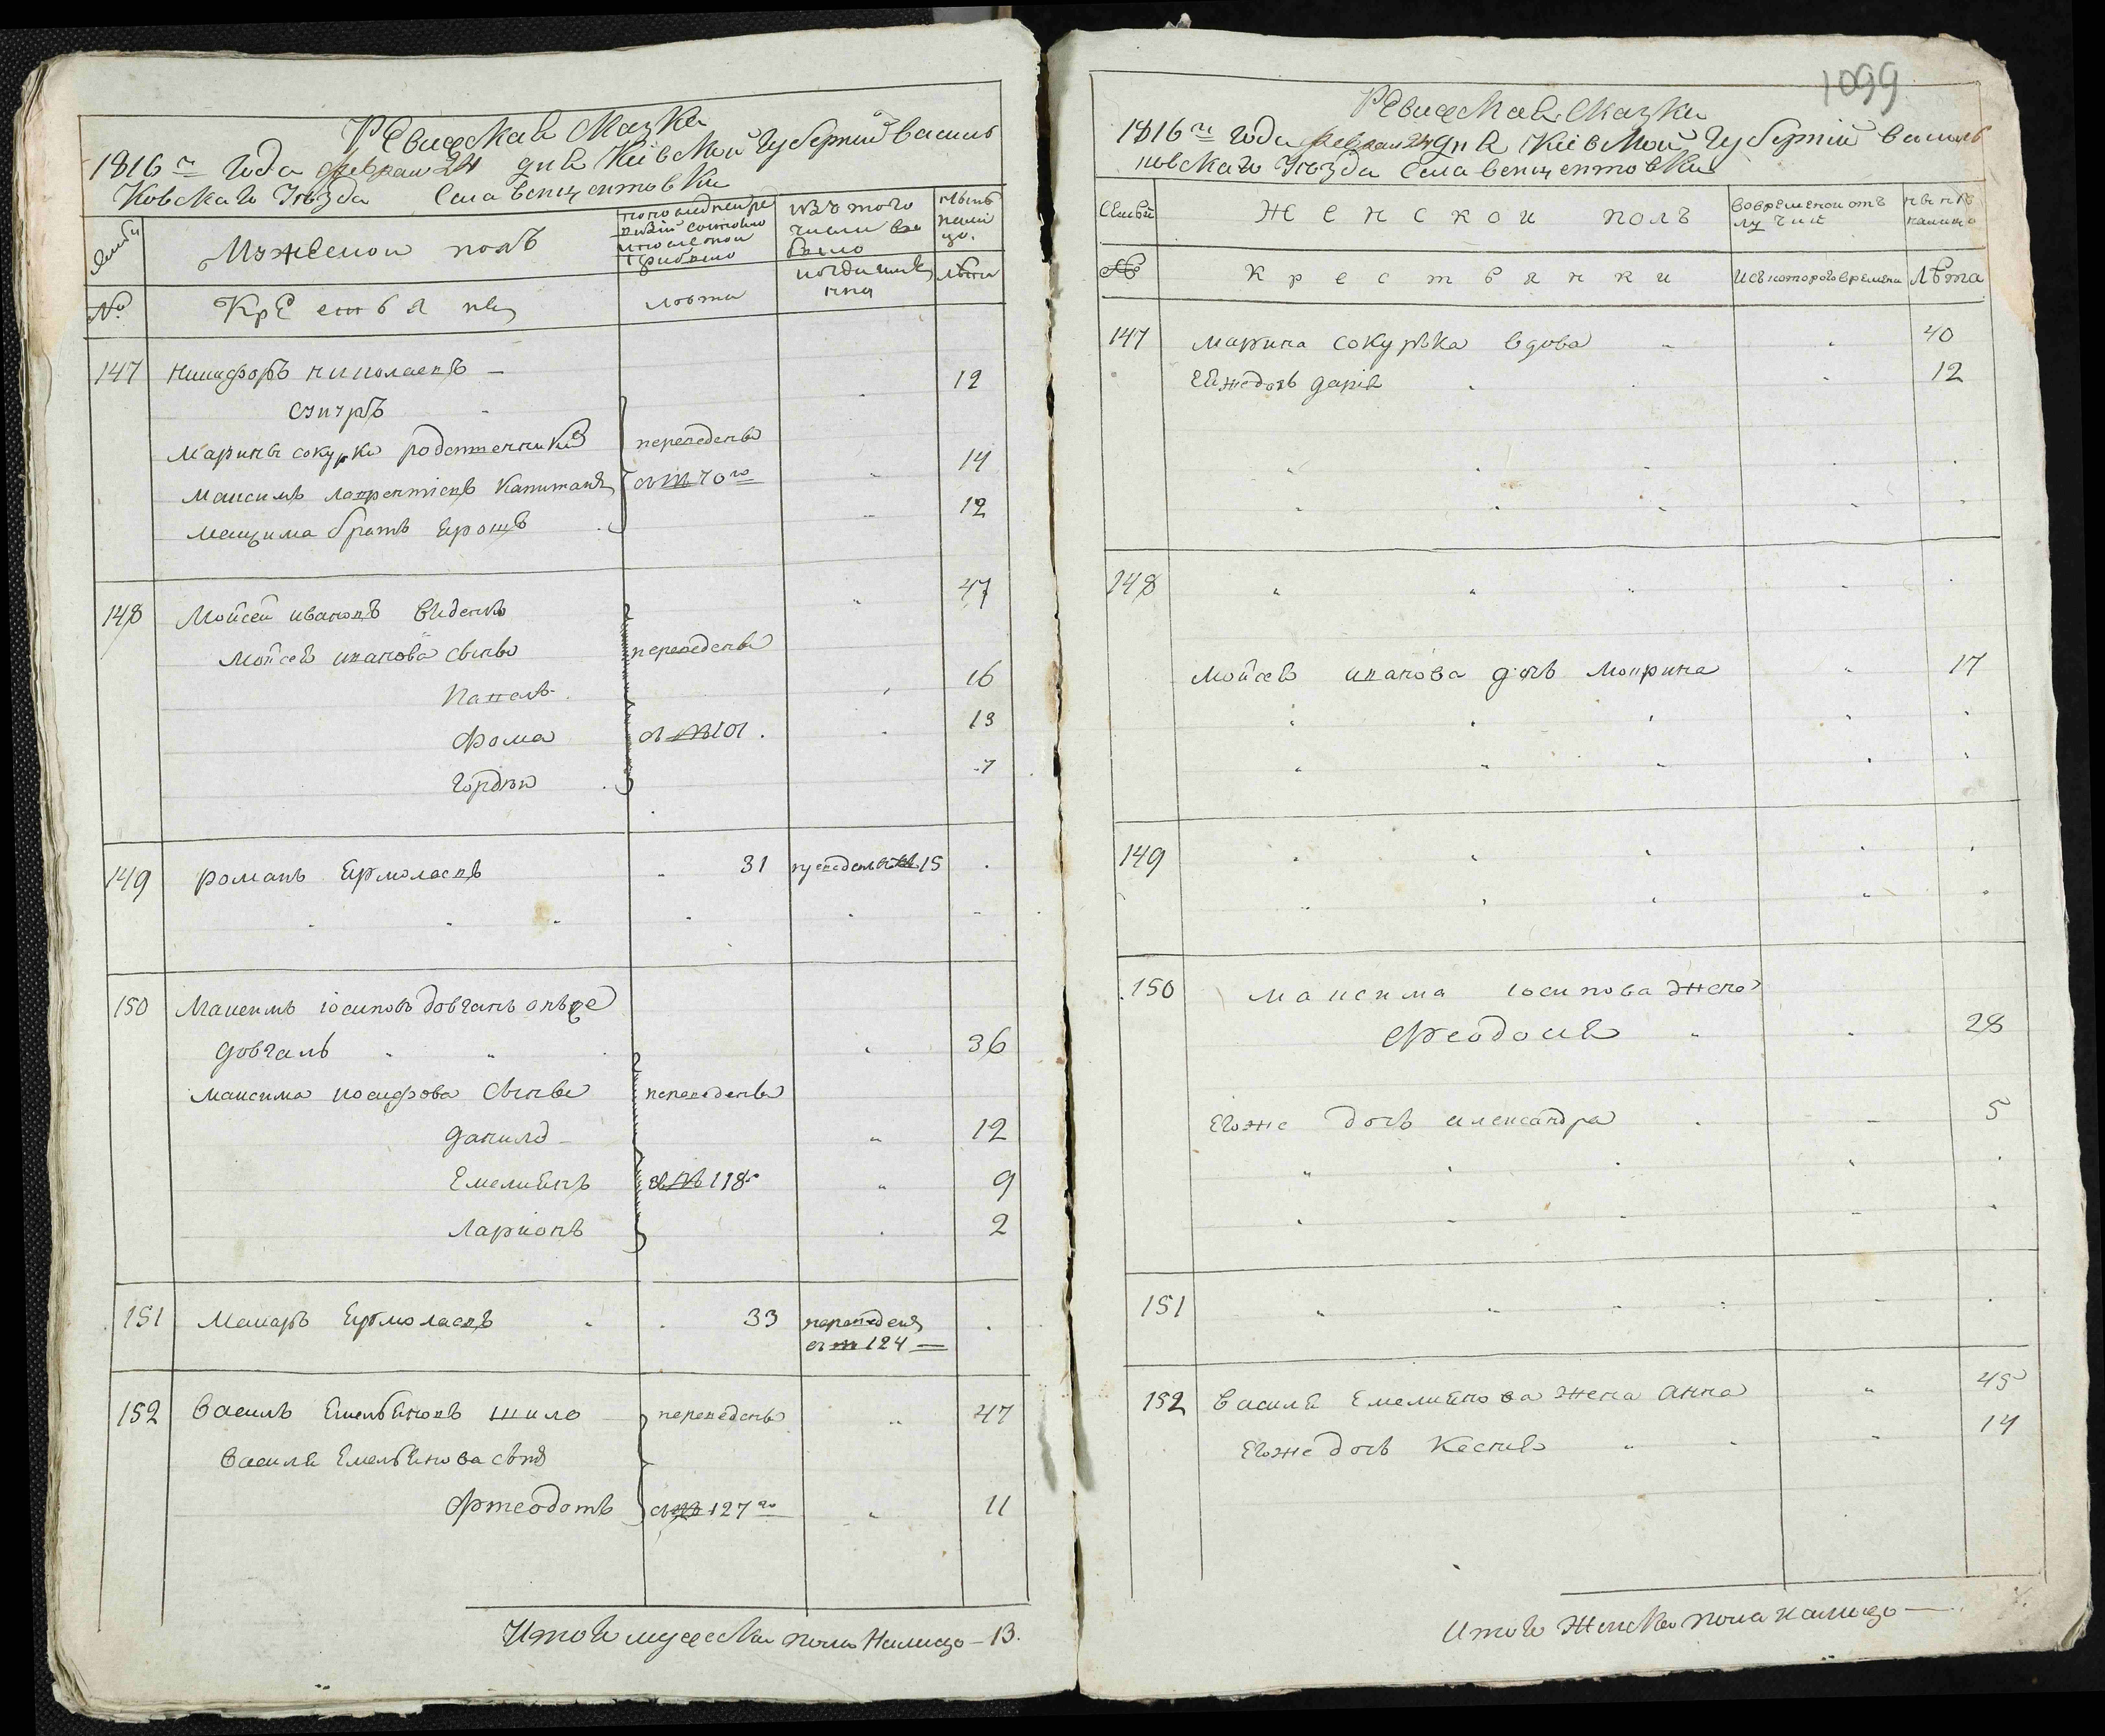 Ревизская сказка
1816го года февраля 24 дня Киевской губернии василь
ковскаго уѣзда Села венцентовки
Семьи
Мужескои полъ
по последней ре
визии состояло
и после тои
прибыло
Изъ того
числа
выбыло
Нынѣ
нали
цо.
№
Крестьяне
лѣта
когда имянно
лѣта
147 Никифоръ николаевъ –
12
Марины сокурки родственники переведены
Максимъ лаврентиевъ капитанъ съ № 70го 14
Максима братъ Ярошъ 12
148 Мойсей ивановъ 47
Мойсея иванова сыны переведены
Павелъ 16
Фома съ № 101. 13
Гордѣй 7
149 романъ Ярмолаевъ 31 переведенъ № 15
150 Максимъ iосиповъ довгань онъже
довгаль 36
Максима иосифова сыны переведены
данило 12
Емелиянъ съ № 118 9
Ларионъ 2
151 Макаръ Ярмолаевъ 33 переведенъ
№ 124
152 Василь Емельяновъ шило переведены 47
Василя Емельянова сынъ
Фтеодотъ съ № 127го 11
Итого мужеска пола налицо – 13.
1099
Ревизская сказка
1816го года февраля 24 дня Киевской губернии василь
ковскаго уѣзда Села венцентовки
Семьи
Женскои полъ
Вовременои отъ
лучке
нынѣ
налицо
№
Крестьянки
Исъ котораго времяни
Лѣта
147 марина сокурька вдова 40
Ея же дочь дарія 12
148
мойсея иванова дочь Моирина 17
149
150 максима iосипова жена
Феодосия 28
Егоже дочь александра 5
151
152 Василя Емелиянова жена анна 45
Егоже дочь Ксения 14
Итого женска пола налицо –